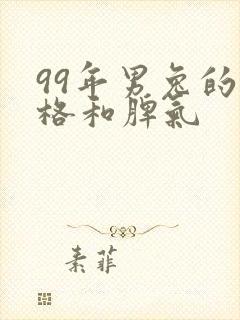 99年男兔的
格和脾氣
素菲